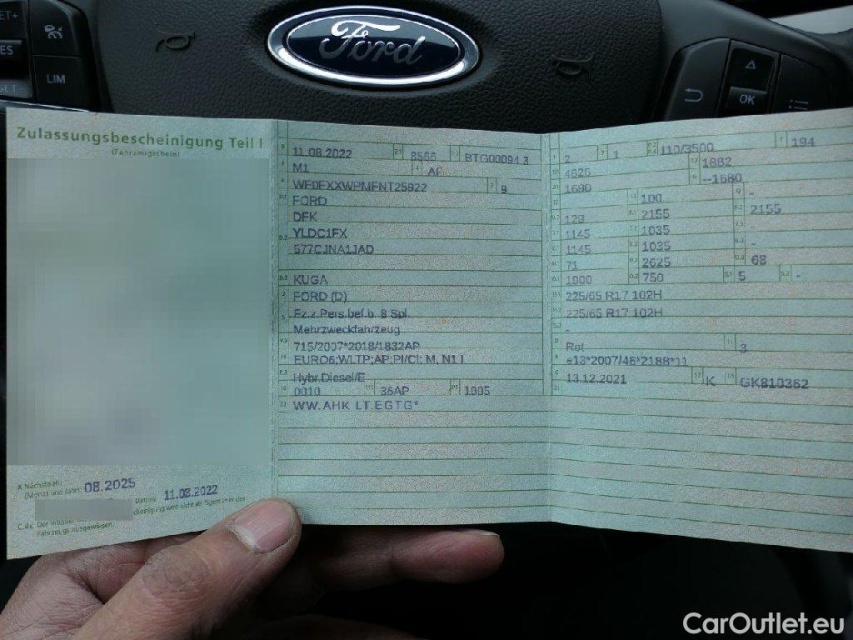 LIM
Ford
OK
Zulassungsbescheinigung Teil I
(Fahrzeugschein)
08.2025
11.08.2022
11.08.2022 8566 BTG00094 3
M1 AF
FORD
DFK
YLDC1FX
577CJNA1JAD
KUGA
FORD (D)
Fz.z.Pers.bef.b. 8 Spl.
Mehrzweckfahrzeug
715/2007*2018/1832AP
EURO6;WLTP;AP;PI/CI; M, N1 I
Hybr.Diesel/E
0010 36AP 1995
WW.AHK LT.EGTG*
2 1 110/3500 194
1882
1680 --1680
100 -
2155 2155
1145 1035
1145 1035 -
71 2625 68
1900 750 5 -
225/65 R17 102H
225/65 R17 102H
-
Rot 3
e13*2007/46*2188*11
13.12.2021 K GK810362
CarOutlet.eu